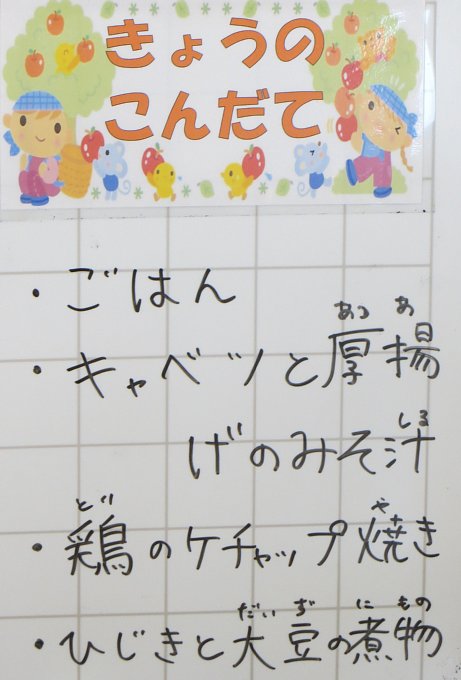 きょうの
こんだて
・ごはん
・キャベツと厚揚
あつ あ
げのみそ汁
しる
・鶏のケチャップ焼き
とり や
・ひじきと大豆の煮物
だいず にもの